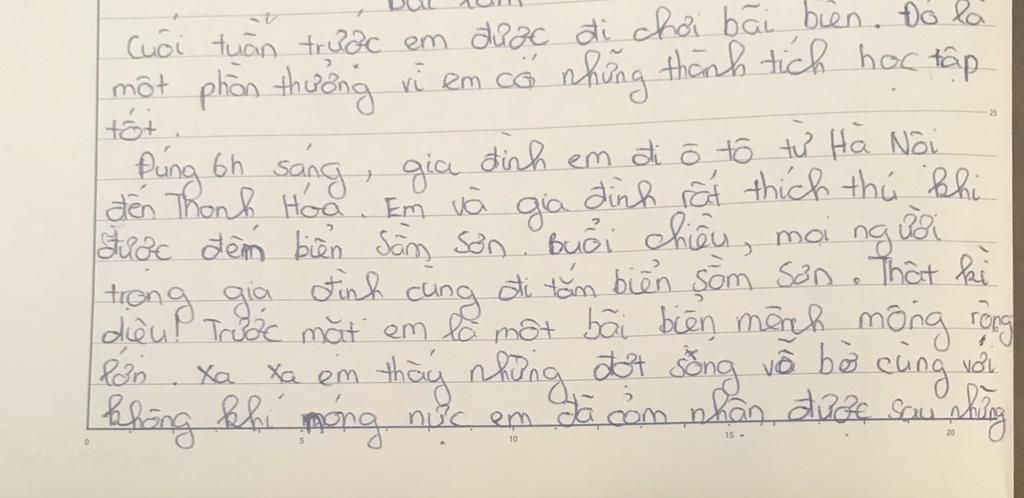 Cuối tuần trước em được đi chơi bãi biển. Đó là
một phần thưởng vì em có những thành tích học tập
tốt.
Đúng 6h sáng, gia đình em đi ô tô từ Hà Nội
đến Thanh Hóa. Em và gia đình rất thích thú khi
được đếm biển Sầm Sơn. buổi chiều, mọi người
trong gia đình cùng đi tắm biển Sầm Sơn. Thật kì
diệu! Trước mắt em là một bãi biển mênh mông rộng
lớn. Xa xa em thấy những đợt sống vỗ bờ cùng với
không khí nóng nực em đã cảm nhận được sau những
25
0 5 10 15 20